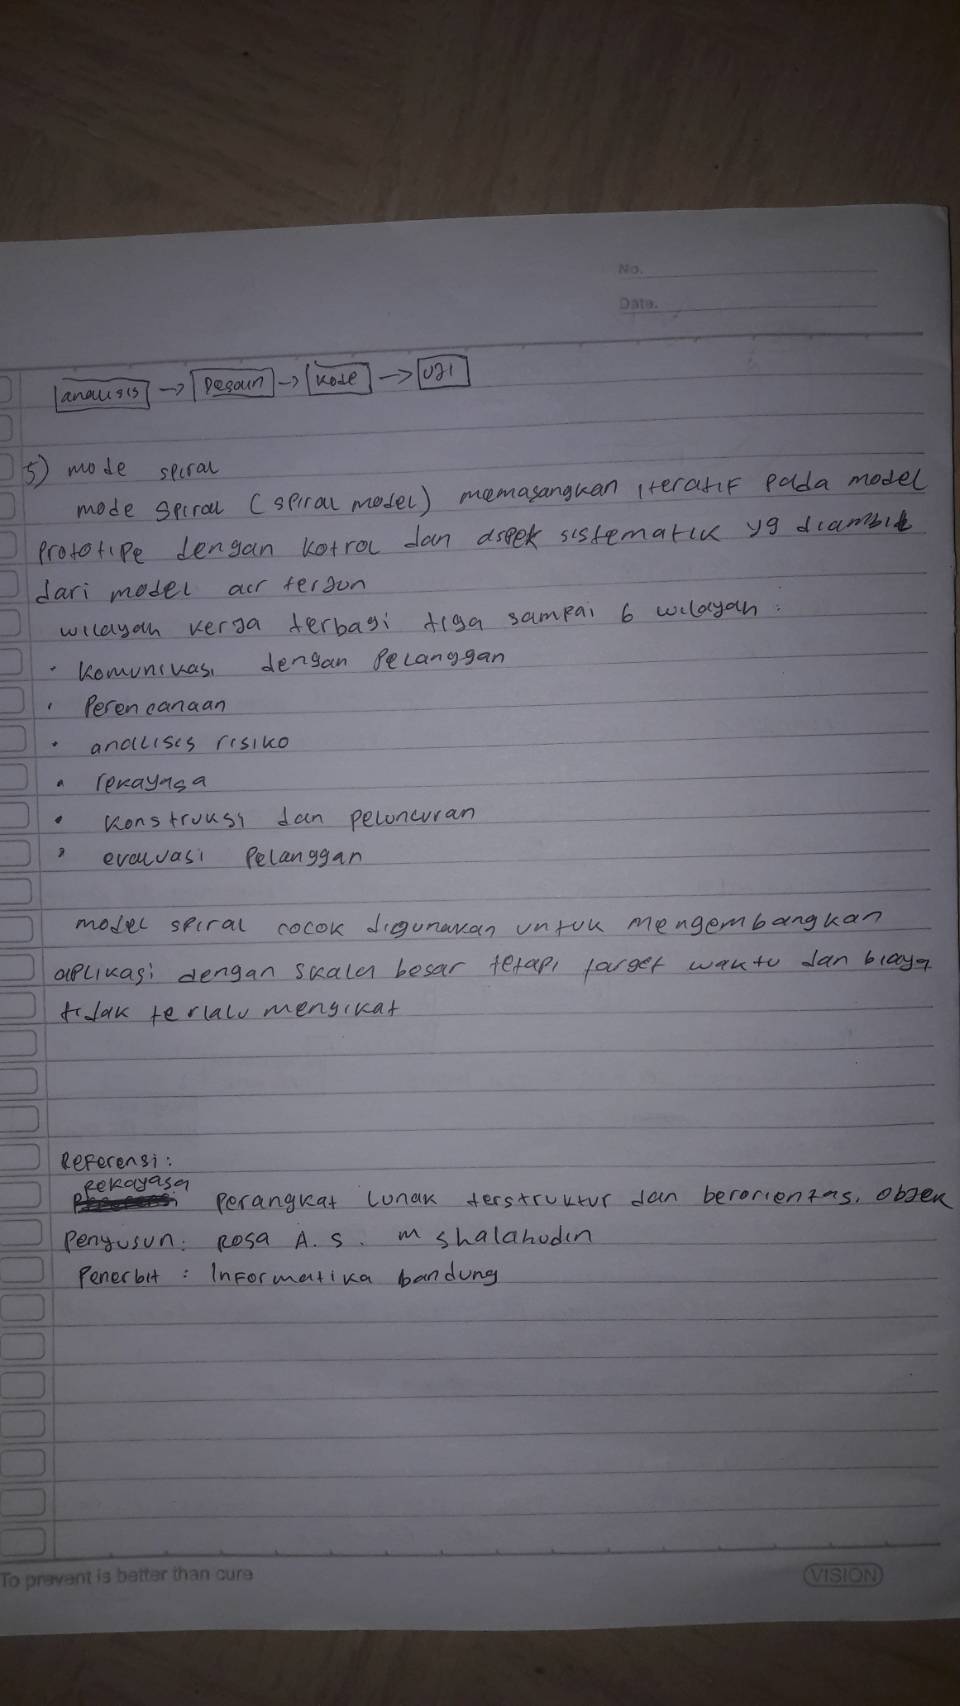 No.
Date.
analisis → Desain → Kode → Uji
5) mode spiral
mode spiral (spiral model) memasangkan iteratif pada model
prototipe dengan kotrol dan aspek sistematik yg diambil
dari model air terjun
wilayah kerja terbagi tiga sampai 6 wilayah :
• Komunikasi dengan Pelanggan
• Perencanaan
• analisis risiko
• rekayasa
• Konstruksi dan peluncuran
• evaluasi Pelanggan
model spiral cocok digunakan untuk mengembangkan
aplikasi dengan skala besar tetapi target waktu dan biaya
tidak terlalu mengikat
Referensi :
Rekayasa perangkat lunak terstruktur dan berorientasi objek
Penyusun : Rosa A. S. M Shalahudin
Penerbit : Informatika bandung
To prevent is better than cure
VISION